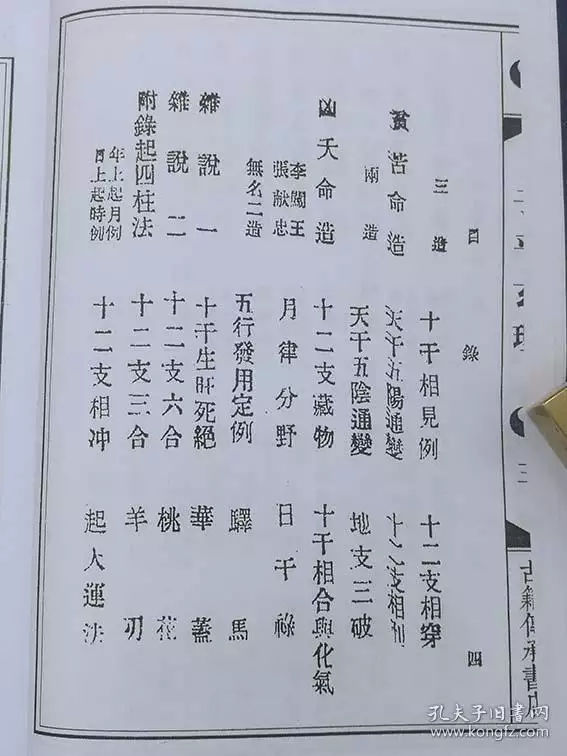 目錄 四
三造
貧苦命造
兩造
凶夭命造
李闖王
張献忠
無名二造
雜說一
雜說二
附錄起四柱法
年上起月例
日上起時例
十干相見例
天干五陽通變
天干五陰通變
十二支藏物
月律分野
五行發用定例
十干生旺死絕
十二支六合
十二支三合
十二支相冲
十二支相穿
十二支相刑
地支三破
十干相合與化氣
日干祿
驛馬
華蓋
桃花
羊刃
起大運法
三
古籍傳承書店
孔夫子旧書网
www.kongfz.com